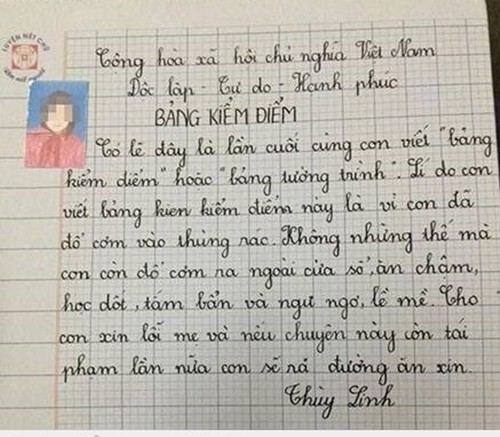 LUYỆN NÉT CHỮ
RÈN NẾT NGƯỜI
Cộng hòa xã hội chủ nghĩa Việt Nam
Độc lập - Tự do - Hạnh phúc
BẢNG KIỂM ĐIỂM
Có lẽ đây là lần cuối cùng con viết "bảng
kiểm điểm" hoặc "bảng tường trình". Lí do con
viết bảng kien kiểm điểm này là vì con đã
đổ cơm vào thùng rác. Không những thế mà
con còn đổ cơm ra ngoài cửa sổ, ăn chậm,
học dốt, tắm bẩn và ngu ngơ, lề mề. Cho
con xin lỗi mẹ và nếu chuyện này còn tái
phạm lần nữa con sẽ ra đường ăn xin.
Thùy Linh